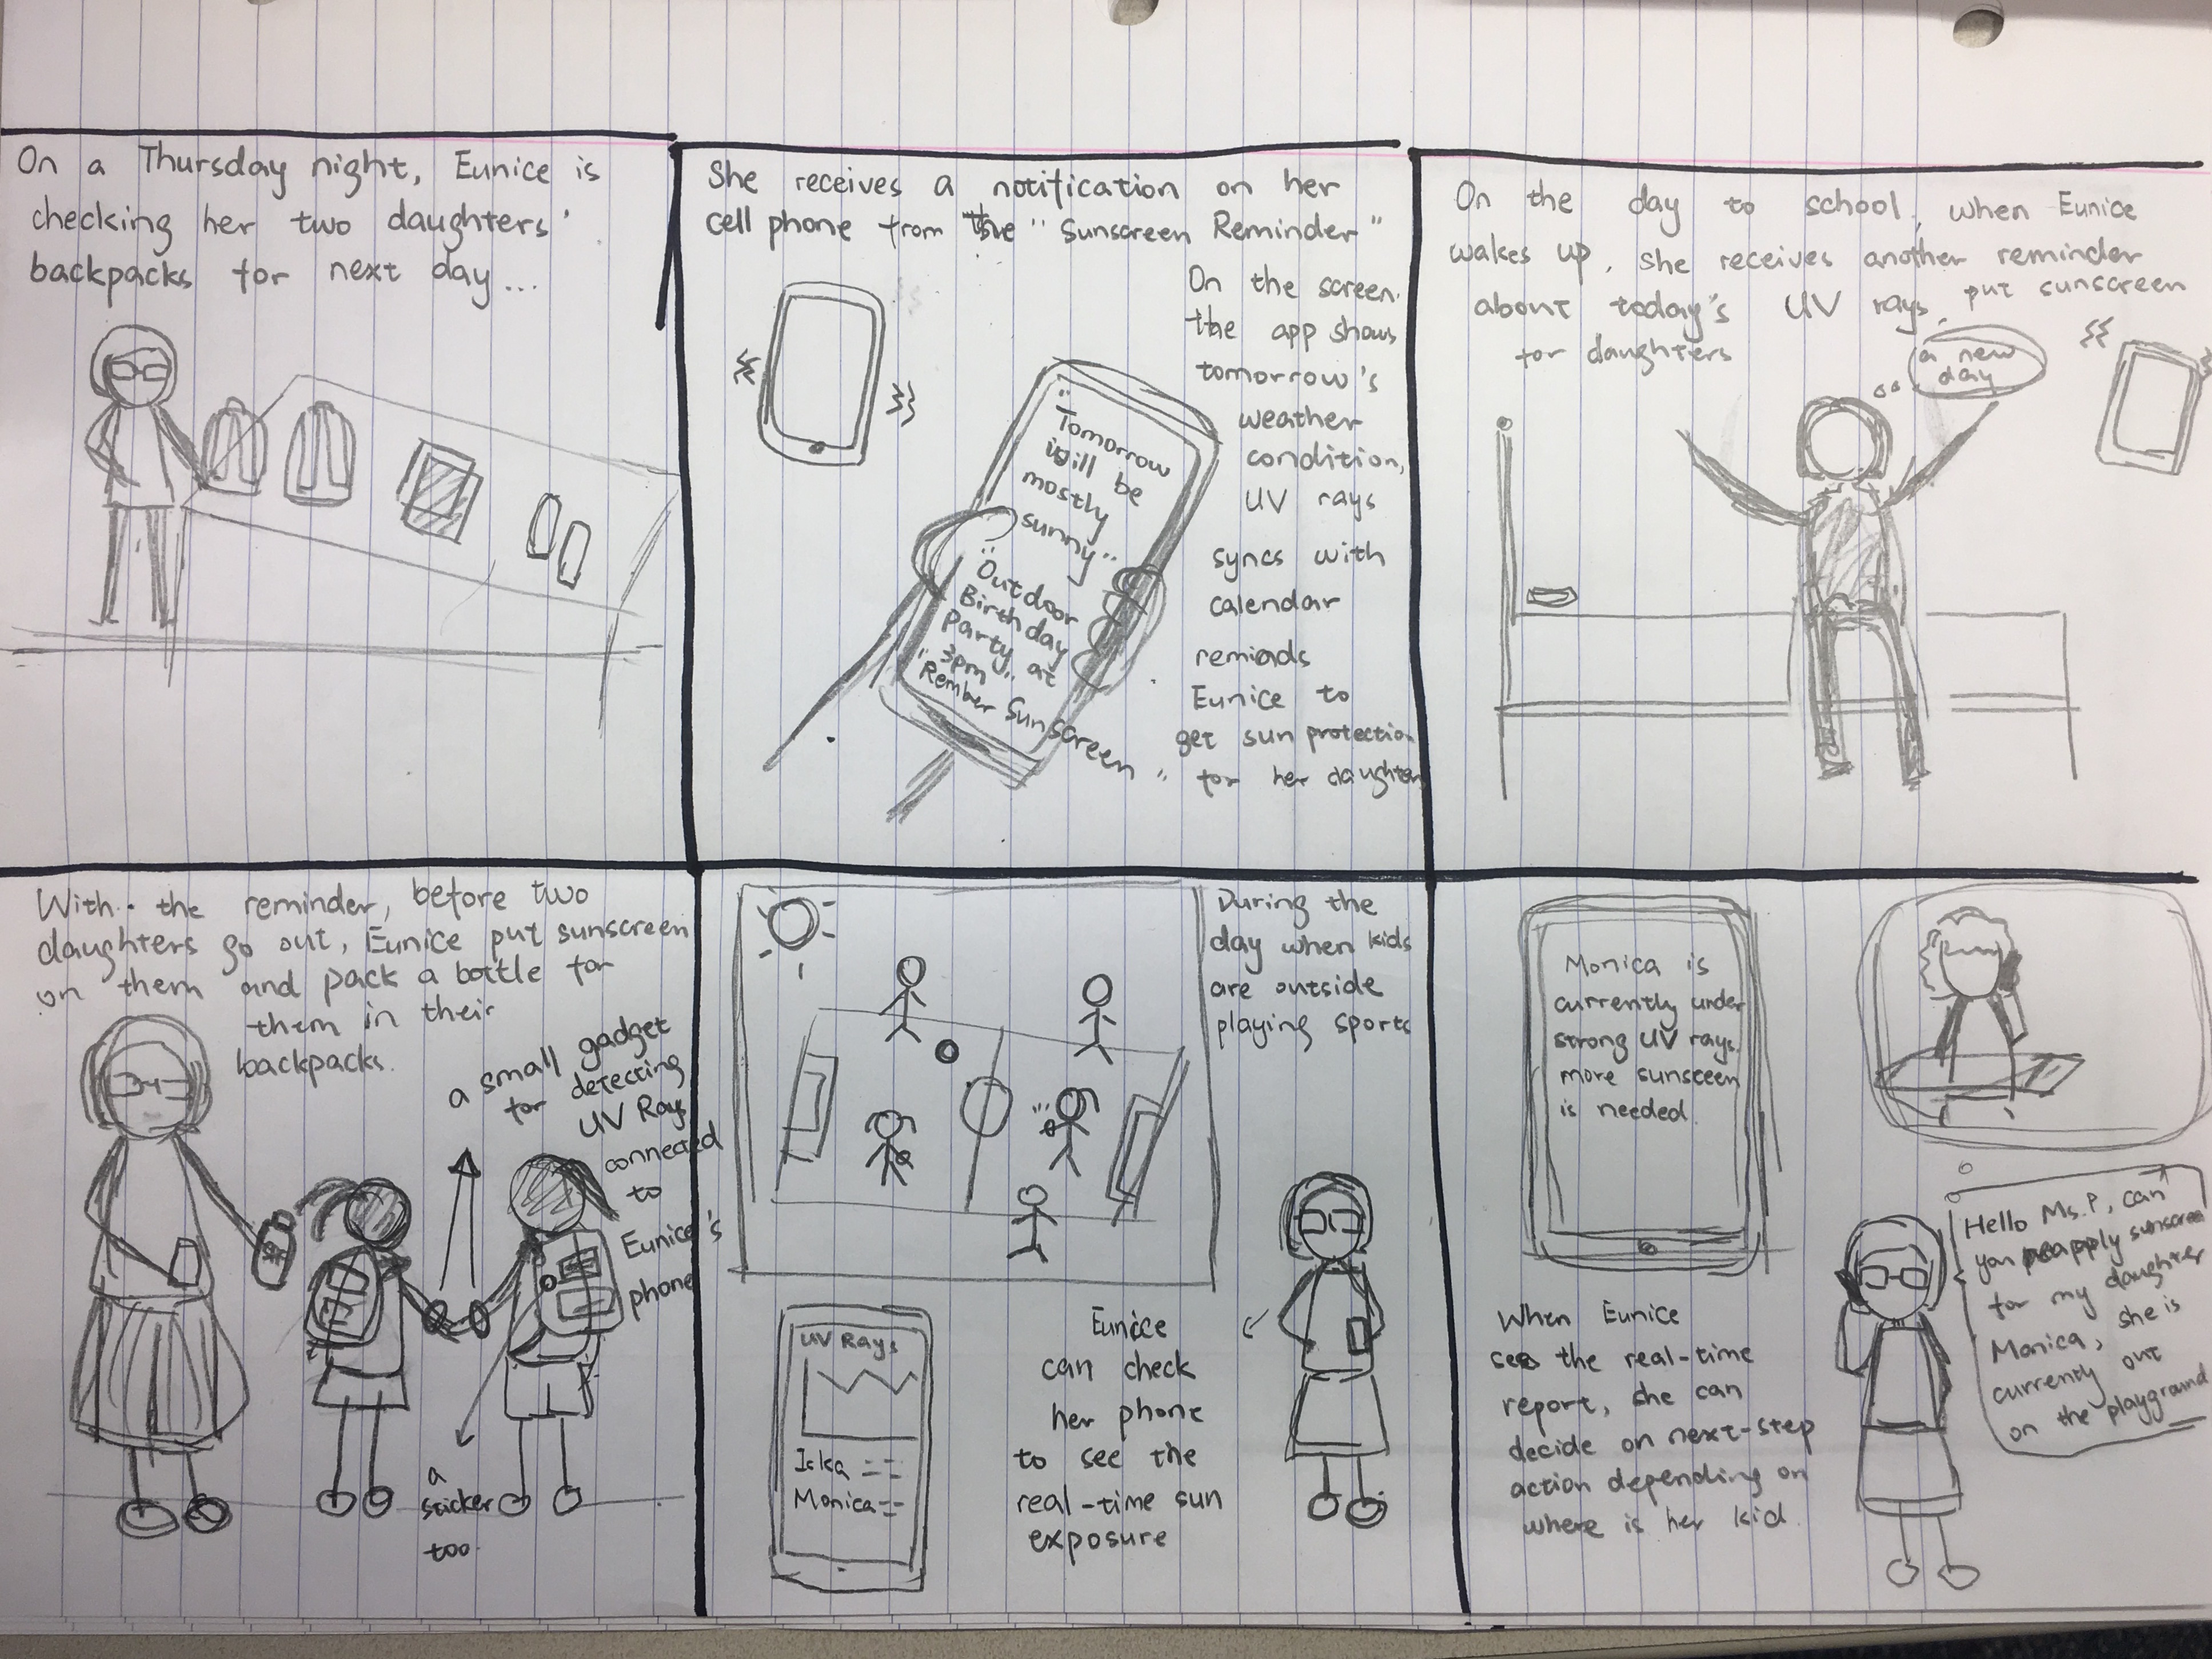 On a Thursday night, Eunice is
checking her two daughters'
backpacks for next day...
She receives a notification on her
cell phone from the "Sunscreen Reminder"
On the screen,
the app shows
tomorrow's
weather
condition,
UV rays
syncs with
calendar
reminds
Eunice to
get sun protection
for her daughters
"Tomorrow
will be
mostly
sunny"
"Outdoor
Birthday
Party at
3pm"
"Rember Sunscreen"
On the day to school, when Eunice
wakes up, she receives another reminder
about today's UV rays, put sunscreen
for daughters
a new
day
With the reminder, before two
daughters go out, Eunice put sunscreen
on them and pack a bottle for
them in their
backpacks.
a small gadget
for detecting
UV Rays
connected
to
Eunice's
phone
a
sticker
too
During the
day when kids
are outside
playing sports
UV Rays
Iska
Monica
Eunice
can check
her phone
to see the
real-time sun
exposure
Monica is
currently under
strong UV rays.
more sunsceen
is needed.
When Eunice
sees the real-time
report, she can
decide on next-step
action depending on
where is her kid.
Hello Ms. P, can
you apply sunscreen
for my daughter
Monica, she is
currently out
on the playground